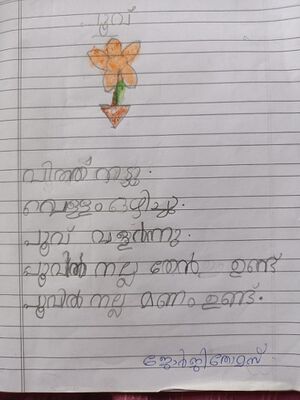 പൂവ്
വിത്ത് നട്ടു.
വെള്ളം ഒഴിച്ചു.
പൂവ് വളർന്നു.
പൂവിൽ നല്ല തേൻ ഉണ്ട്
പൂവിൽ നല്ല മണം ഉണ്ട്.
ജോർജിതോമസ്